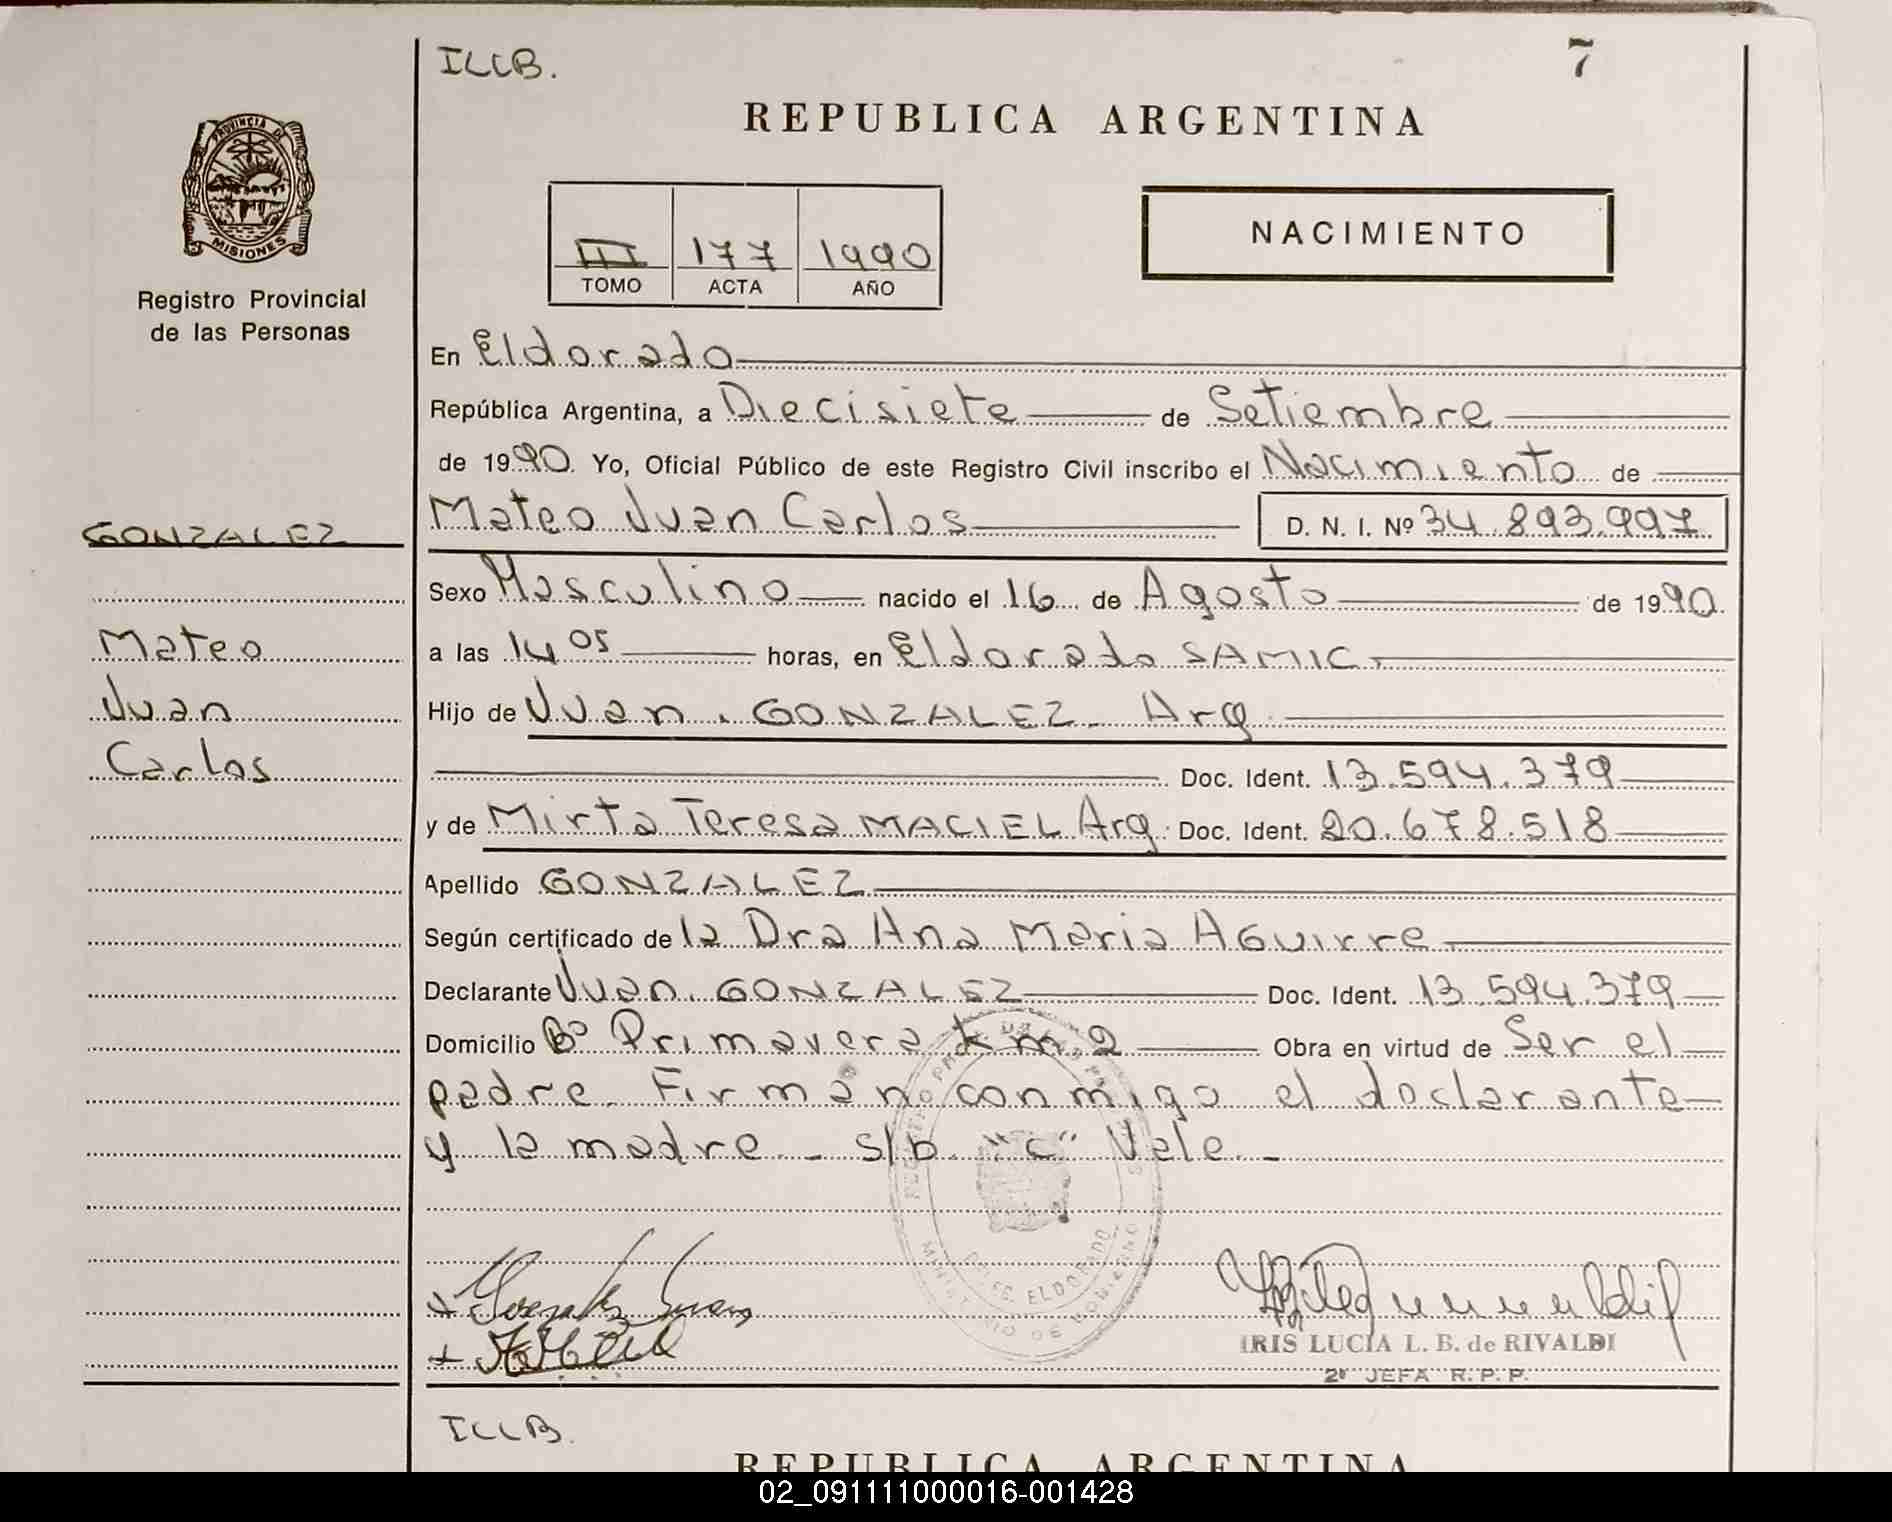 ILLB.
7
REPUBLICA ARGENTINA
PROVINCIA DE
MISIONES
Registro Provincial
de las Personas
III 177 1990
TOMO ACTA AÑO
NACIMIENTO
En Eldorado
República Argentina, a Diecisiete de Setiembre
de 1990. Yo, Oficial Público de este Registro Civil inscribo el Nacimiento de
GONZALEZ
Mateo Juan Carlos D. N. I. Nº 34.893.997
Sexo Masculino nacido el 16 de Agosto de 1990.
Mateo
a las 14 05 horas, en Eldorado SAMIC.
Juan
Hijo de Juan. GONZALEZ - Arg.
Carlos
Doc. Ident. 13.594.379
y de Mirta Teresa MACIEL Arg. Doc. Ident. 20.678.518
Apellido GONZALEZ
Según certificado de la Dra Ana Maria AGuirre
Declarante Juan. GONZALEZ Doc. Ident. 13.594.379
Domicilio Bº Primavera km 2 Obra en virtud de Ser el
padre. Firman conmigo el declarante
y la madre - s/b "c" Vale. -
DELEG. ELDORADO
MINISTERIO DE GOBIERNO
+ Gonzalez Juan
+
IRIS LUCIA L. B. de RIVALDI
2ª JEFA R. P. P.
ILLB.
REPUBLICA ARGENTINA
02_091111000016-001428